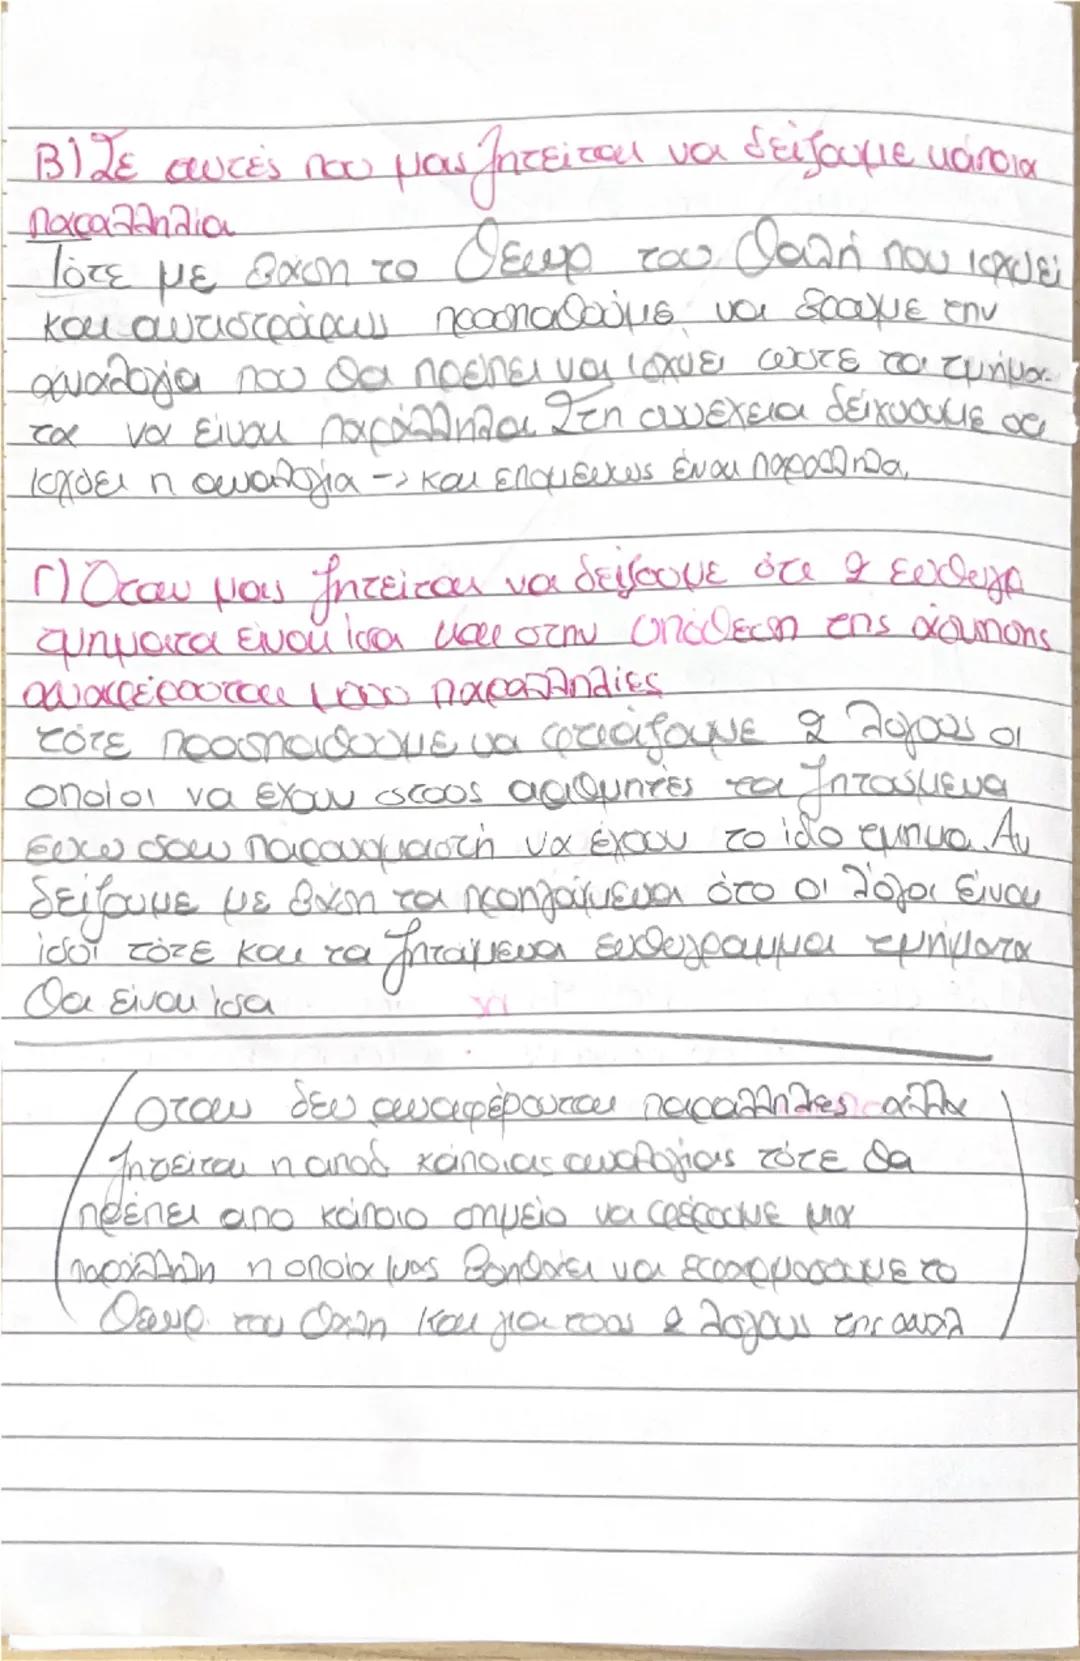 Β) Σε αυτές που μας ζητείται να δείξουμε κάποια
παραλληλία
Τότε με βάση το Θεωρ του Θαλή που ισχύει
και αντιστρόφως προσπαθούμε να βρούμε την
αναλογία που θα πρέπει να ισχύει ώστε τα τμήμα-
τα να είναι παράλληλα. Στη συνέχεια δείχνουμε οτι
ισχύει η αναλογία -> και επομένως είναι παράλληλα.
Γ) Όταν μας ζητείται να δείξουμε ότι 2 ευθυγρ
τμήματα είναι ίσα και στην υπόθεση της άσκησης
αναφέρονται παραλληλίες
τότε προσπαθούμε να φτιάξουμε 2 λόγους οι
οποίοι να έχουν στους αριθμητές τα ζητούμενα
ενώ σαν παρανομαστή να έχουν το ίδιο τμήμα. Αν
δείξουμε με βάση τα προηγούμενα ότι οι λόγοι είναι
ίσοι τότε και τα ζητούμενα ευθύγραμμα τμήματα
θα είναι ίσα
Όταν δεν αναφέρονται παραλληλίες αλλά
ζητείται η αποδ κάποιας αναλογίας τότε θα
πρέπει απο κάποιο σημείο να φέρουμε μια
παράλληλη η οποία μας βοηθάει να εφαρμόσουμε το
Θεωρ. του Θαλη και για τους 2 λόγους της αναλ